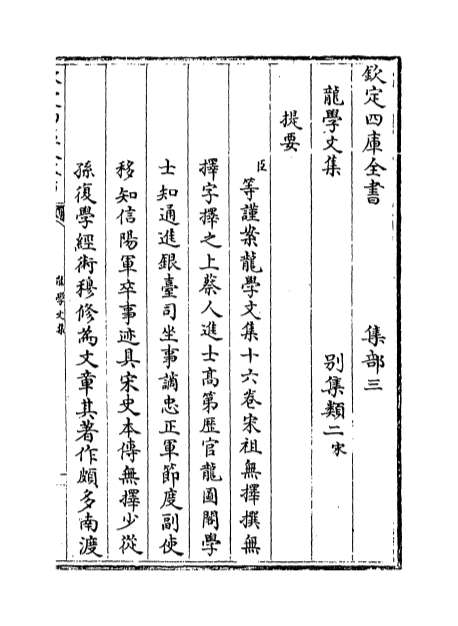 欽定四庫全書 集部三
龍學文集 別集類二宋
提要
臣等謹案龍學文集十六卷宋祖無擇撰無
擇字擇之上蔡人進士高第歷官龍圖閣學
士知通進銀臺司坐事謫忠正軍節度副使
移知信陽軍卒事迹具宋史本傳無擇少從
孫復學經術穆修為文章其著作頗多南渡
龍學文集